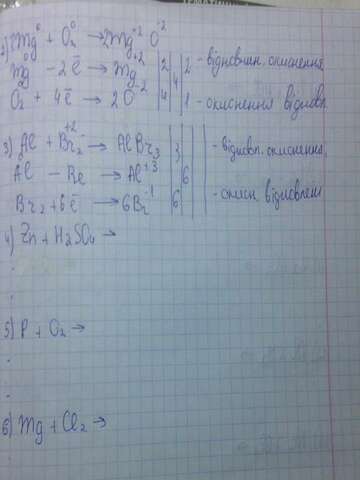 2Mg⁰ + O₂⁰ → 2Mg⁺² O⁻²
Mg⁰ - 2ē → Mg⁺² | 2 | 4 | 2 - відновник, окиснення
O₂ + 4ē → 2O⁻² | 4 | | 1 - окиснення відновл.
3) Al + Br₂ → AlBr₃ | 3 | - відновл. окиснення,
Al - → Al⁺³ | 6
Br₂ + 6ē → 6Br⁻¹ | 6 | - окисн. відновлені
4) Zn + H₂SO₄ →
5) P + O₂ →
6) Mg + Cl₂ →